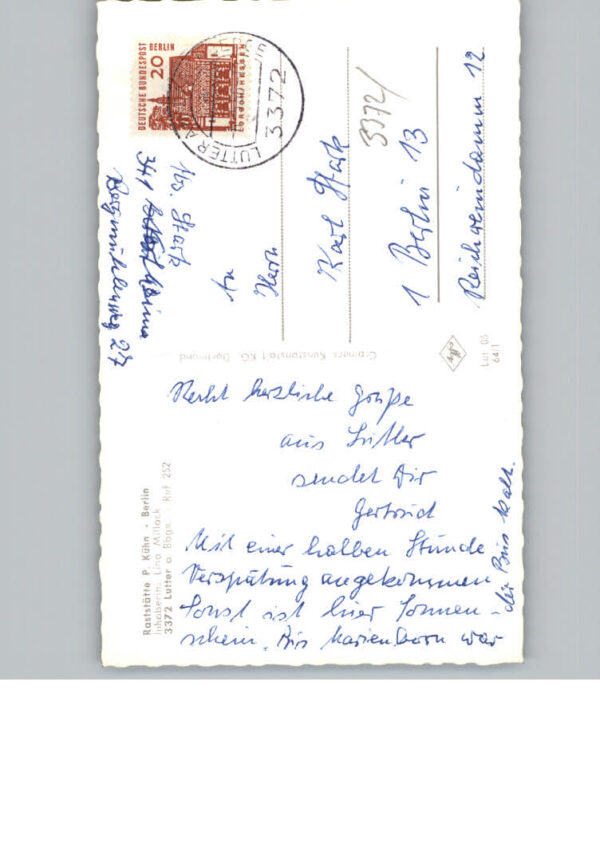 DEUTSCHE BUNDESPOST BERLIN
20
LORSCH/HESSEN
LUTTER A
3372
3372/
An
Herrn
Karl Stark
1 Berlin 13
Reichweindamm 12
Abs. Stark
Bergmühlenweg 27
Cramers Kunstanstalt KG, Dortmund
Lut 03
64/1
Recht herzliche Grüße
aus Lutter
sendet Dir
Gertrud
Mit einer halben Stunde
Verspätung angekommen
Sonst ist hier Sonnen-
schein. Bis Marienborn war
der Bus kalt.
Raststätte P. Kühn - Berlin
Inhaberin: Lina Mittack
3372 Lutter a. Bbge. - Ruf 252